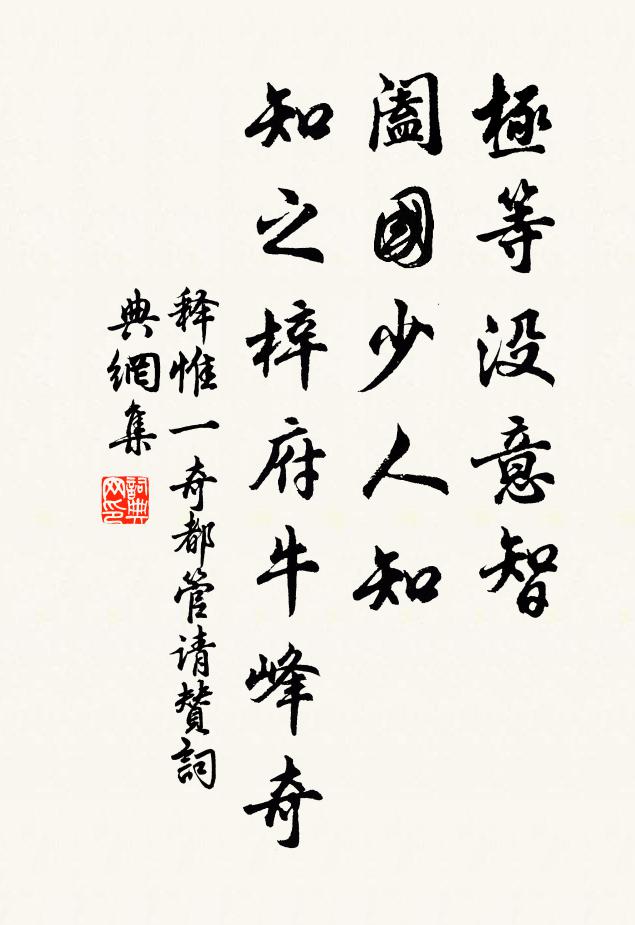 極等没意智
闔國少人知
知之梓府牛峰奇
释惟一奇都管请贊詞
典網集
詞典
网印